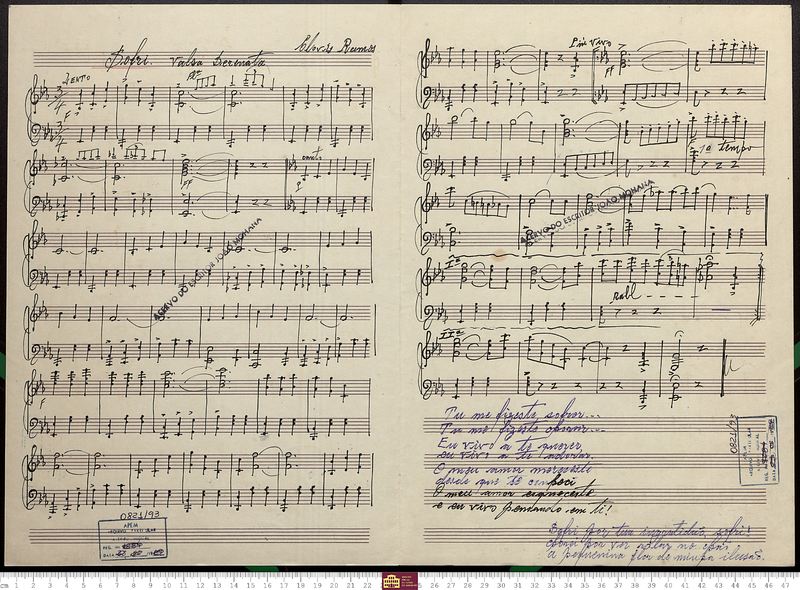 Sofri. Valsa Serenata
Clovis Ramos
Lento
F
FF
canto
P
F
ACERVO DO ESCRITOR JOÃO MOHANA
0821/93
APEM
Piu vivo
FF
1º tempo
ACERVO DO ESCRITOR JOÃO MOHANA
Iª
Rall
IIª
Tu me fizeste sofrer...
Tu me fizeste
Eu vivo a te querer
eu vivo a te adorar.
O meu amor
desde que te conheci
O meu amor
e eu vivo pensando em ti!
0821/93
APEM
Sofri por tua ingratidão, sofri!
por ver
a pequenina flor de minha ilusão.
cm 1 2 3 4 5 6 7 8 9 10 11 12 13 14 15 16 17 18 19 20 21 22 26 27 28 29 30 31 32 33 34 35 36 37 38 39 40 41 42 43 44 45 46 47